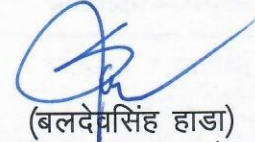 (बलदेवसिंह हाडा)